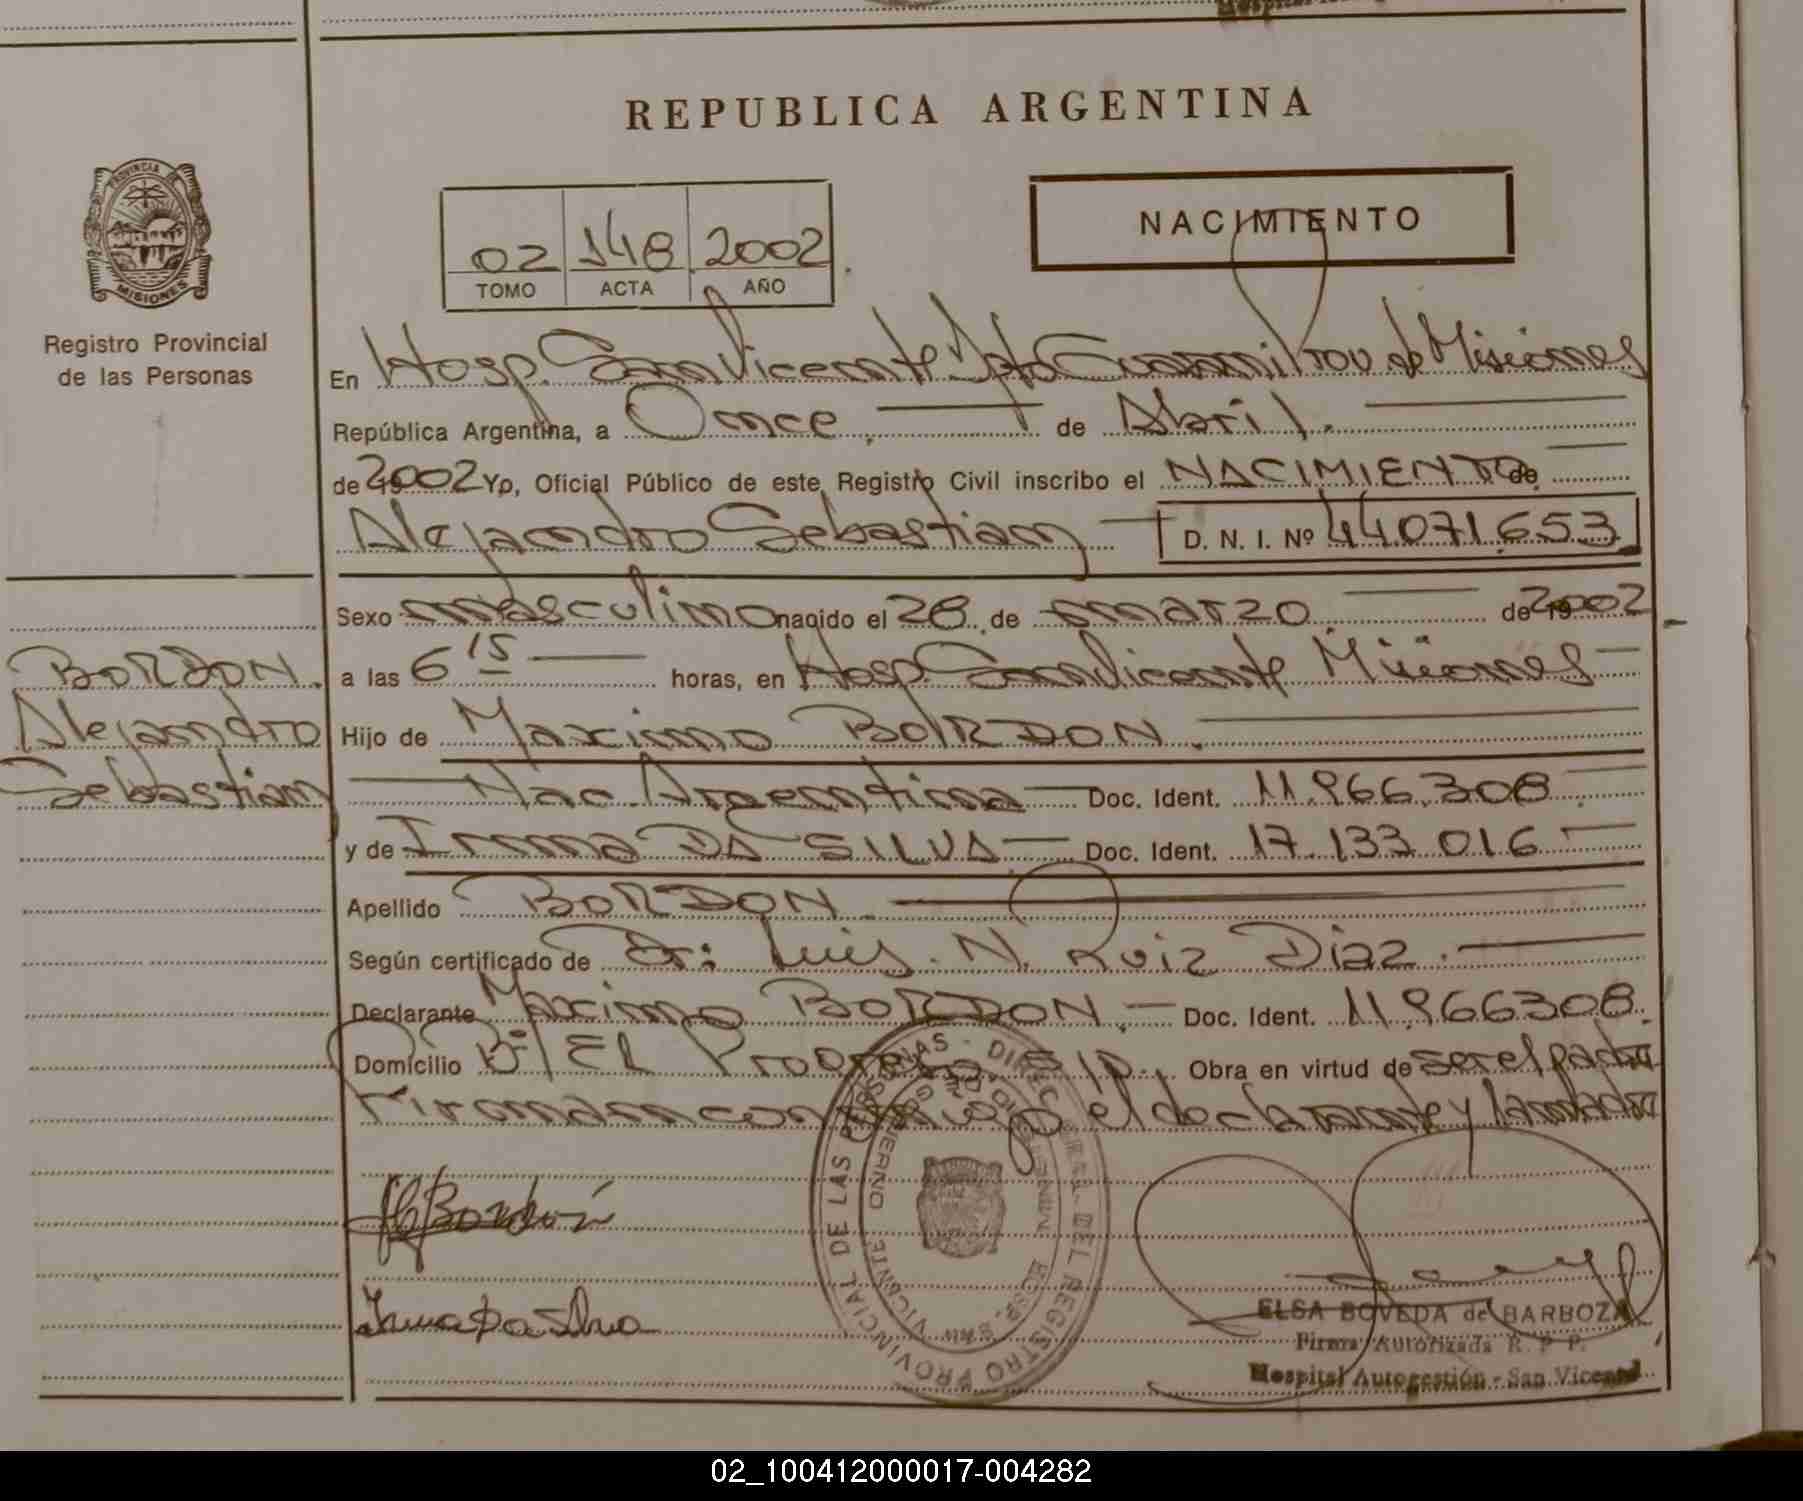 REPUBLICA ARGENTINA
PROVINCIA DE
MISIONES
Registro Provincial
de las Personas
02 148 2002
TOMO ACTA AÑO
NACIMIENTO
En Hosp. San Vicente Dpto Guarani Prov. de Misiones
República Argentina, a Once de Abril.
de 2002 Yo, Oficial Público de este Registro Civil inscribo el NACIMIENTO de
Alejandro Sebastian D. N. I. Nº 44071653
Sexo masculino nacido el 28 de marzo de 19 2002
a las 6 15 horas, en Hosp. San Vicente Misiones
Hijo de Maximo BORDON.
Nac. Argentina Doc. Ident. 11.966.308
y de Irma DA SILVA Doc. Ident. 17.133.016
Apellido BORDON
Según certificado de Dr: Luis. N. Ruiz Diaz.
Declarante Maximo BORDON. Doc. Ident. 11.966308.
Domicilio Bº El Progreso Obra en virtud de ser el padre
Firman conmigo el declarante y la madre
BORDON.
Alejandro
Sebastian
Bordon
Irma Da Silva
REGISTRO PROVINCIAL DE LAS PERSONAS - DIREC. GRAL. DEL
HOSP. SAN VICENTE
ELSA BOVEDA de BARBOZA
Firma Autorizada R. P. P.
Hospital Autogestión - San Vicente
02_100412000017-004282